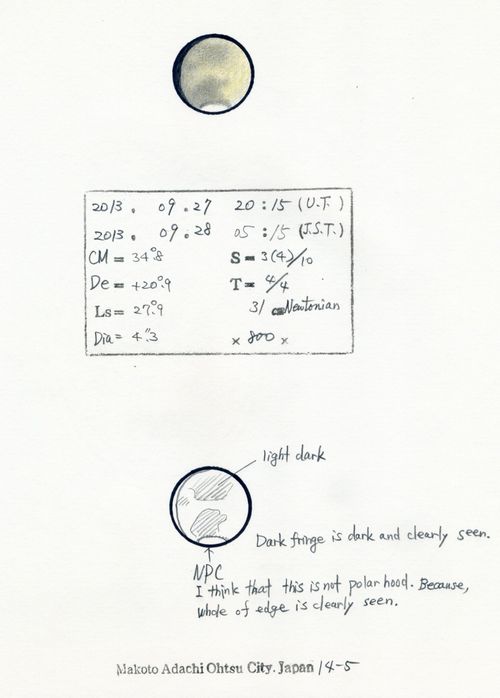 2013. 09.27 20:15 (U.T.)
2013. 09.28 05:15 (J.S.T.)
CM = 34°.8 S = 3(4)/10
De = +20°.9 T = 4/4
Ls = 27°.9 31 cm Newtonian
Dia = 4".3 × 800 ×
light dark
Dark fringe is dark and clearly seen.
NPC
I think that this is not polar hood. Because,
whole of edge is clearly seen.
Makoto Adachi Ohtsu City. Japan 14-5